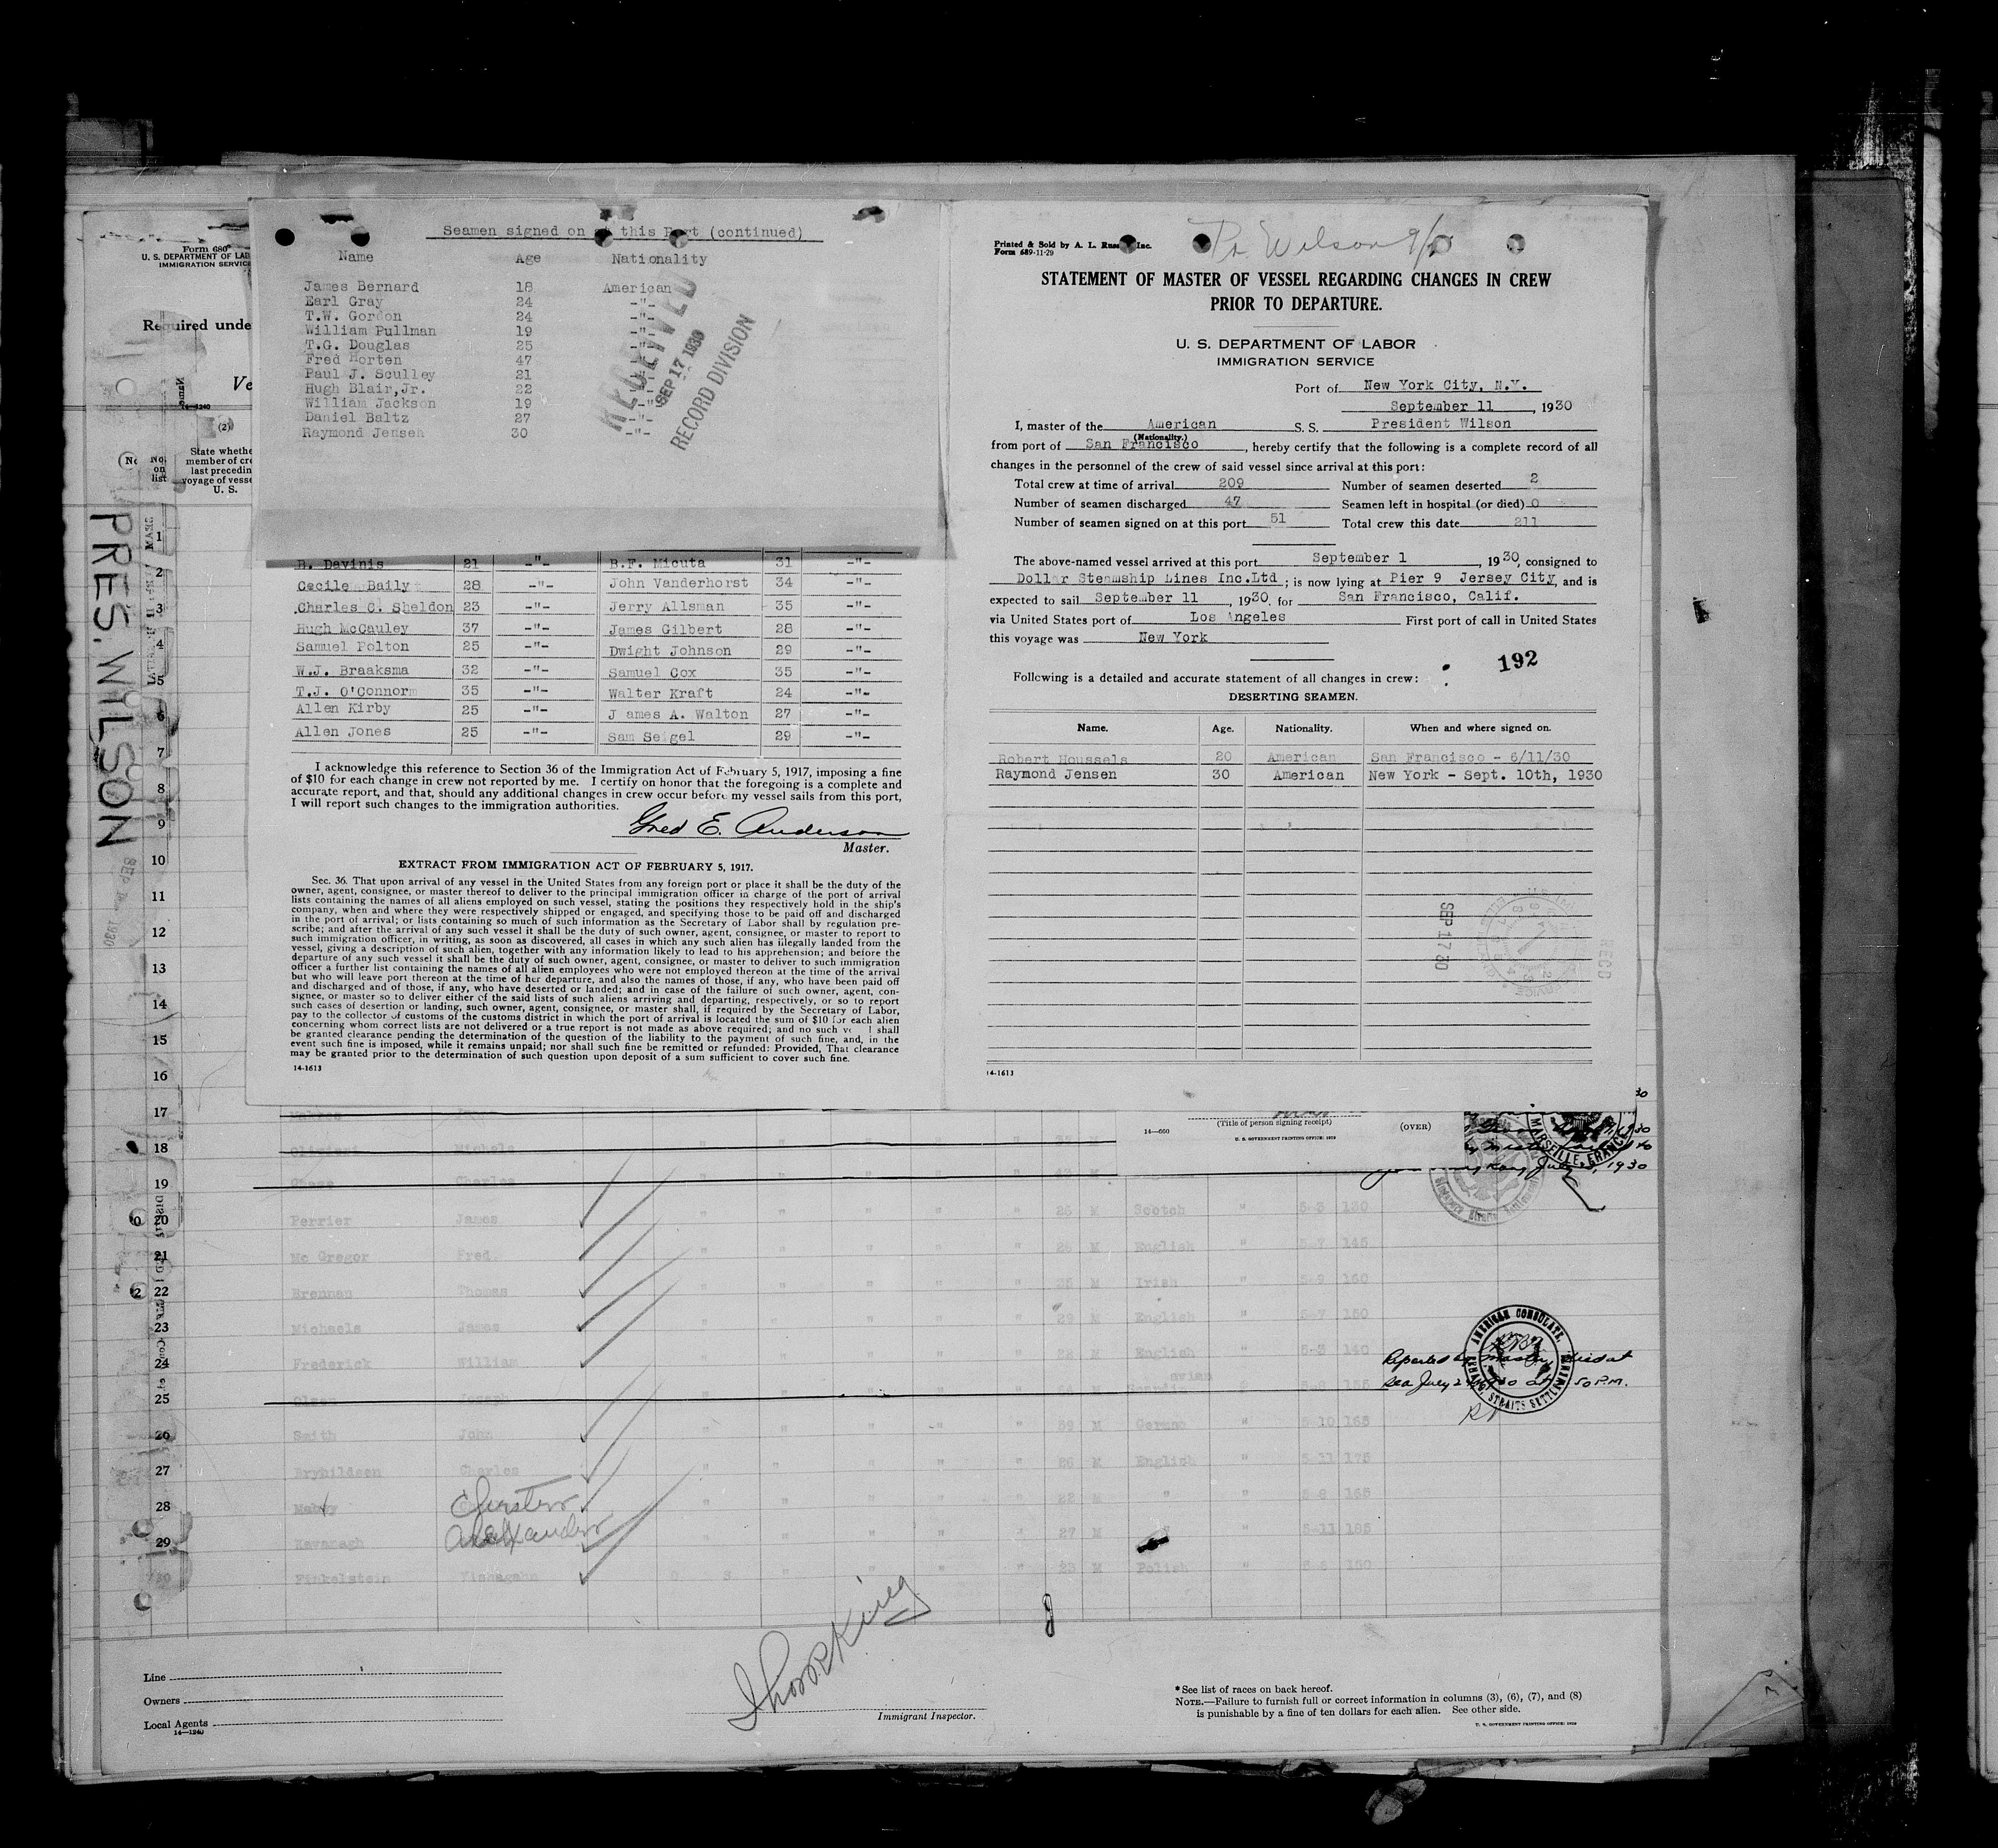 Seamen signed on this Port (continued)
Name Age Nationality
James Bernard 18 American
Earl Gray 24 -"-
T.W. Gordon 24 -"-
William Pullman 19 -"-
T.G. Douglas 25 -"-
Fred Horten 47 -"-
Paul J. Sculley 21 -"-
Hugh Blair,Jr. 22 -"-
William Jackson 19 -"-
Daniel Baltz 27 -"-
Raymond Jensen 30 -"-
RECEIVED
SEP 17 1930
RECORD DIVISION
Form 680
U. S. DEPARTMENT OF LAB
IMMIGRATION SERVICE
Required unde
Ve
14-1240
(2)
State whethe
member of cre
last precedin
voyage of vesse
U. S.
No.
on
list
PRES. WILSON
B. Davinis 21 -"- B.F. Micuta 31 -"-
Cecile Baily 28 -"- John Vanderhorst 34 -"-
Charles C. Sheldon 23 -"- Jerry Allsman 35 -"-
Hugh McCauley 37 -"- James Gilbert 28 -"-
Samuel Polton 25 -"- Dwight Johnson 29 -"-
W.J. Braaksma 32 -"- Samuel Cox 35 -"-
T.J. O'Connorm 35 -"- Walter Kraft 24 -"-
Allen Kirby 25 -"- J ames A. Walton 27 -"-
Allen Jones 25 -"- Sam Seigel 29 -"-
I acknowledge this reference to Section 36 of the Immigration Act of February 5, 1917, imposing a fine
of $10 for each change in crew not reported by me. I certify on honor that the foregoing is a complete and
accurate report, and that, should any additional changes in crew occur before my vessel sails from this port,
I will report such changes to the immigration authorities.
Fred E. Anderson
Master.
EXTRACT FROM IMMIGRATION ACT OF FEBRUARY 5, 1917.
Sec. 36. That upon arrival of any vessel in the United States from any foreign port or place it shall be the duty of the
owner, agent, consignee, or master thereof to deliver to the principal immigration officer in charge of the port of arrival
lists containing the names of all aliens employed on such vessel, stating the positions they respectively hold in the ship's
company, when and where they were respectively shipped or engaged, and specifying those to be paid off and discharged
in the port of arrival; or lists containing so much of such information as the Secretary of Labor shall by regulation pre-
scribe; and after the arrival of any such vessel it shall be the duty of such owner, agent, consignee, or master to report to
such immigration officer, in writing, as soon as discovered, all cases in which any such alien has illegally landed from the
vessel, giving a description of such alien, together with any information likely to lead to his apprehension; and before the
departure of any such vessel it shall be the duty of such owner, agent, consignee, or master to deliver to such immigration
officer a further list containing the names of all alien employees who were not employed thereon at the time of the arrival
but who will leave port thereon at the time of her departure, and also the names of those, if any, who have been paid off
and discharged and of those, if any, who have deserted or landed; and in case of the failure of such owner, agent, con-
signee, or master so to deliver either of the said lists of such aliens arriving and departing, respectively, or so to report
such cases of desertion or landing, such owner, agent, consignee, or master shall, if required by the Secretary of Labor,
pay to the collector of customs of the customs district in which the port of arrival is located the sum of $10 for each alien
concerning whom correct lists are not delivered or a true report is not made as above required; and no such ve l shall
be granted clearance pending the determination of the question of the liability to the payment of such fine, and, in the
event such fine is imposed, while it remains unpaid; nor shall such fine be remitted or refunded: Provided, That clearance
may be granted prior to the determination of such question upon deposit of a sum sufficient to cover such fine.
14-1613
Printed & Sold by A. L. Russ Inc.
Form 689-11-29
Pr. Wilson 9/
STATEMENT OF MASTER OF VESSEL REGARDING CHANGES IN CREW
PRIOR TO DEPARTURE.
U. S. DEPARTMENT OF LABOR
IMMIGRATION SERVICE
Port of New York City, N.Y.
September 11, 1930
I, master of the American S. S. President Wilson
(Nationality.)
from port of San Francisco, hereby certify that the following is a complete record of all
changes in the personnel of the crew of said vessel since arrival at this port:
Total crew at time of arrival 209 Number of seamen deserted 2
Number of seamen discharged 47 Seamen left in hospital (or died) 0
Number of seamen signed on at this port 51 Total crew this date 211
The above-named vessel arrived at this port September 1, 1930, consigned to
Dollar Steamship Lines Inc.Ltd; is now lying at Pier 9 Jersey City, and is
expected to sail September 11, 1930, for San Francisco, Calif.
via United States port of Los Angeles First port of call in United States
this voyage was New York
192
Following is a detailed and accurate statement of all changes in crew:
DESERTING SEAMEN.
Name. Age. Nationality. When and where signed on.
Robert Houssels 20 American San Francisco - 6/11/30
Raymond Jensen 30 American New York - Sept. 10th, 1930
SEP 17 30
RECD
14-1613
1
2
3
4
5
6
7
8
9
10
11
12
13
14
15
16
17
(Title of person signing receipt)
14-660 U. S. GOVERNMENT PRINTING OFFICE: 1929 (OVER)
MARSEILLE, FRANCE
18 Michele
19 Chase Charles
July 1930
20 Perrier James " " " " " 26 M Scotch " 5-5 130
21 Mc Gregor Fred. " " " " " 26 M English " 5-7 145
22 Brennan Thomas " " " " " 25 M Irish " 5-9 160
23 Michaels James " " " " " 29 M English " 5-7 150
24 Frederick William " " " " " 22 M English " 5-3 140
25 Olsen Joseph
Reported by master died at
sea July 2 1930 at 50 P.M.
AMERICAN CONSULATE, PENANG, STRAITS SETTLEMENTS
26 Smith John " " " " 39 M German " 5 10 165
27 Brybildsen Charles " " " " " 26 M English " 5 11 175
28 Chester " " " " " 22 M " " 5-8 165
29 Kavanagh Alexander " " " " " 27 M " " 5-11 185
30 Finkelstein O. S. " " " " 23 M Polish " 5-8 150
Line
Owners
Local Agents
14-1240
Immigrant Inspector.
*See list of races on back hereof.
NOTE.—Failure to furnish full or correct information in columns (3), (6), (7), and (8)
is punishable by a fine of ten dollars for each alien. See other side.
U. S. GOVERNMENT PRINTING OFFICE: 1929